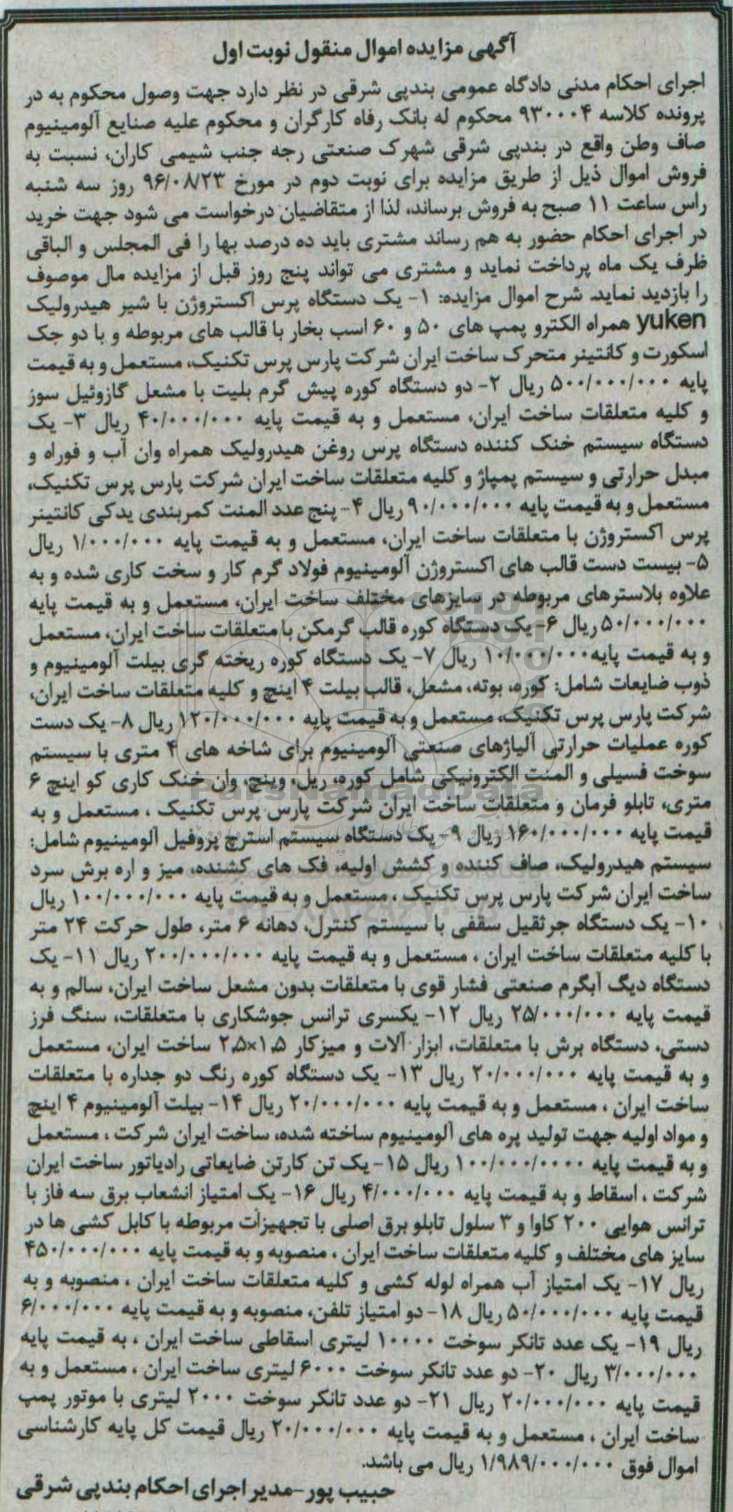 آگهی مزایده اموال منقول نوبت اول
اجرای احکام مدنی دادگاه عمومی بندپی شرقی در نظر دارد جهت وصول محکوم به در
پرونده کلاسه ۹۳۰۰۰۴ محکوم له بانک رفاه کارگران و محکوم علیه صنایع آلومینیوم
صاف وطن واقع در بندپی شرقی شهرک صنعتی رجه جنب شیمی کاران، نسبت به
فروش اموال ذیل از طریق مزایده برای نوبت دوم در مورخ ۹۶/۰۸/۲۳ روز سه شنبه
راس ساعت ۱۱ صبح به فروش برساند، لذا از متقاضیان درخواست می شود جهت خرید
در اجرای احکام حضور به هم رساند مشتری باید ده درصد بها را فی المجلس و الباقی
ظرف یک ماه پرداخت نماید و مشتری می تواند پنج روز قبل از مزایده مال موصوف
را بازدید نماید. شرح اموال مزایده: ۱- یک دستگاه پرس اکستروژن با شیر هیدرولیک
yuken همراه الکترو پمپ های ۵۰ و ۶۰ اسب بخار با قالب های مربوطه و با دو جک
اسکورت و کانتینر متحرک ساخت ایران شرکت پارس پرس تکنیک، مستعمل و به قیمت
پایه ۵۰۰/۰۰۰/۰۰۰ ریال ۲- دو دستگاه کوره پیش گرم بلیت با مشعل گازوئیل سوز
و کلیه متعلقات ساخت ایران، مستعمل و به قیمت پایه ۴۰/۰۰۰/۰۰۰ ریال ۳- یک
دستگاه سیستم خنک کننده دستگاه پرس روغن هیدرولیک همراه وان آب و فوراه و
مبدل حرارتی و سیستم پمپاژ و کلیه متعلقات ساخت ایران شرکت پارس پرس تکنیک،
مستعمل و به قیمت پایه ۹۰/۰۰۰/۰۰۰ ریال ۴- پنج عدد المنت کمربندی یدکی کانتینر
پرس اکستروژن با متعلقات ساخت ایران، مستعمل و به قیمت پایه ۱/۰۰۰/۰۰۰ ریال
۵- بیست دست قالب های اکستروژن آلومینیوم فولاد گرم کار و سخت کاری شده و به
علاوه بلاسترهای مربوطه در سایزهای مختلف ساخت ایران، مستعمل و به قیمت پایه
۵۰/۰۰۰/۰۰۰ ریال ۶- یک دستگاه کوره قالب گرمکن با متعلقات ساخت ایران، مستعمل
و به قیمت پایه ۱۰/۰۰۰/۰۰۰ ریال ۷- یک دستگاه کوره ریخته گری بیلت آلومینیوم و
ذوب ضایعات شامل: کوره، بوته، مشعل، قالب بیلت ۴ اینچ و کلیه متعلقات ساخت ایران،
شرکت پارس پرس تکنیک، مستعمل و به قیمت پایه ۱۲۰/۰۰۰/۰۰۰ ریال ۸- یک دست
کوره عملیات حرارتی آلیاژهای صنعتی آلومینیوم برای شاخه های ۴ متری با سیستم
سوخت فسیلی و المنت الکترونیکی شامل کوره، ریل، وینچ، وان خنک کاری کو اینچ ۶
متری، تابلو فرمان و متعلقات ساخت ایران شرکت پارس پرس تکنیک ، مستعمل و به
قیمت پایه ۱۶۰/۰۰۰/۰۰۰ ریال ۹- یک دستگاه سیستم استرچ پروفیل آلومینیوم شامل:
سیستم هیدرولیک، صاف کننده و کشش اولیه، فک های کشنده، میز و اره برش سرد
ساخت ایران شرکت پارس پرس تکنیک ، مستعمل و به قیمت پایه ۱۰۰/۰۰۰/۰۰۰ ریال
۱۰- یک دستگاه جرثقیل سقفی با سیستم کنترل، دهانه ۶ متر، طول حرکت ۲۴ متر
با کلیه متعلقات ساخت ایران ، مستعمل و به قیمت پایه ۲۰۰/۰۰۰/۰۰۰ ریال ۱۱- یک
دستگاه دیگ آبگرم صنعتی فشار قوی با متعلقات بدون مشعل ساخت ایران، سالم و به
قیمت پایه ۲۵/۰۰۰/۰۰۰ ریال ۱۲- یکسری ترانس جوشکاری با متعلقات، سنگ فرز
دستی، دستگاه برش با متعلقات، ابزار آلات و میزکار ۱.۵×۲.۵ ساخت ایران، مستعمل
و به قیمت پایه ۲۰/۰۰۰/۰۰۰ ریال ۱۳- یک دستگاه کوره رنگ دو جداره با متعلقات
ساخت ایران ، مستعمل و به قیمت پایه ۲۰/۰۰۰/۰۰۰ ریال ۱۴- بیلت آلومینیوم ۴ اینچ
و مواد اولیه جهت تولید پره های آلومینیوم ساخته شده، ساخت ایران شرکت ، مستعمل
و به قیمت پایه ۱۰۰/۰۰۰/۰۰۰۰ ریال ۱۵- یک تن کارتن ضایعاتی رادیاتور ساخت ایران
شرکت ، اسقاط و به قیمت پایه ۴/۰۰۰/۰۰۰ ریال ۱۶- یک امتیاز انشعاب برق سه فاز با
ترانس هوایی ۲۰۰ کاوا و ۳ سلول تابلو برق اصلی با تجهیزات مربوطه با کابل کشی ها در
سایز های مختلف و کلیه متعلقات ساخت ایران ، منصوبه و به قیمت پایه ۴۵۰/۰۰۰/۰۰۰
ریال ۱۷- یک امتیاز آب همراه لوله کشی و کلیه متعلقات ساخت ایران ، منصوبه و به
قیمت پایه ۵۰/۰۰۰/۰۰۰ ریال ۱۸- دو امتیاز تلفن، منصوبه و به قیمت پایه ۶/۰۰۰/۰۰۰
ریال ۱۹- یک عدد تانکر سوخت ۱۰۰۰۰ لیتری اسقاطی ساخت ایران ، به قیمت پایه
۳/۰۰۰/۰۰۰ ریال ۲۰- دو عدد تانکر سوخت ۶۰۰۰ لیتری ساخت ایران ، مستعمل و به
قیمت پایه ۲۰/۰۰۰/۰۰۰ ریال ۲۱- دو عدد تانکر سوخت ۲۰۰۰ لیتری با موتور پمپ
ساخت ایران ، مستعمل و به قیمت پایه ۲۰/۰۰۰/۰۰۰ ریال قیمت کل پایه کارشناسی
اموال فوق ۱/۹۸۹/۰۰۰/۰۰۰ ریال می باشد.
حبیب پور-مدیر اجرای احکام بندپی شرقی